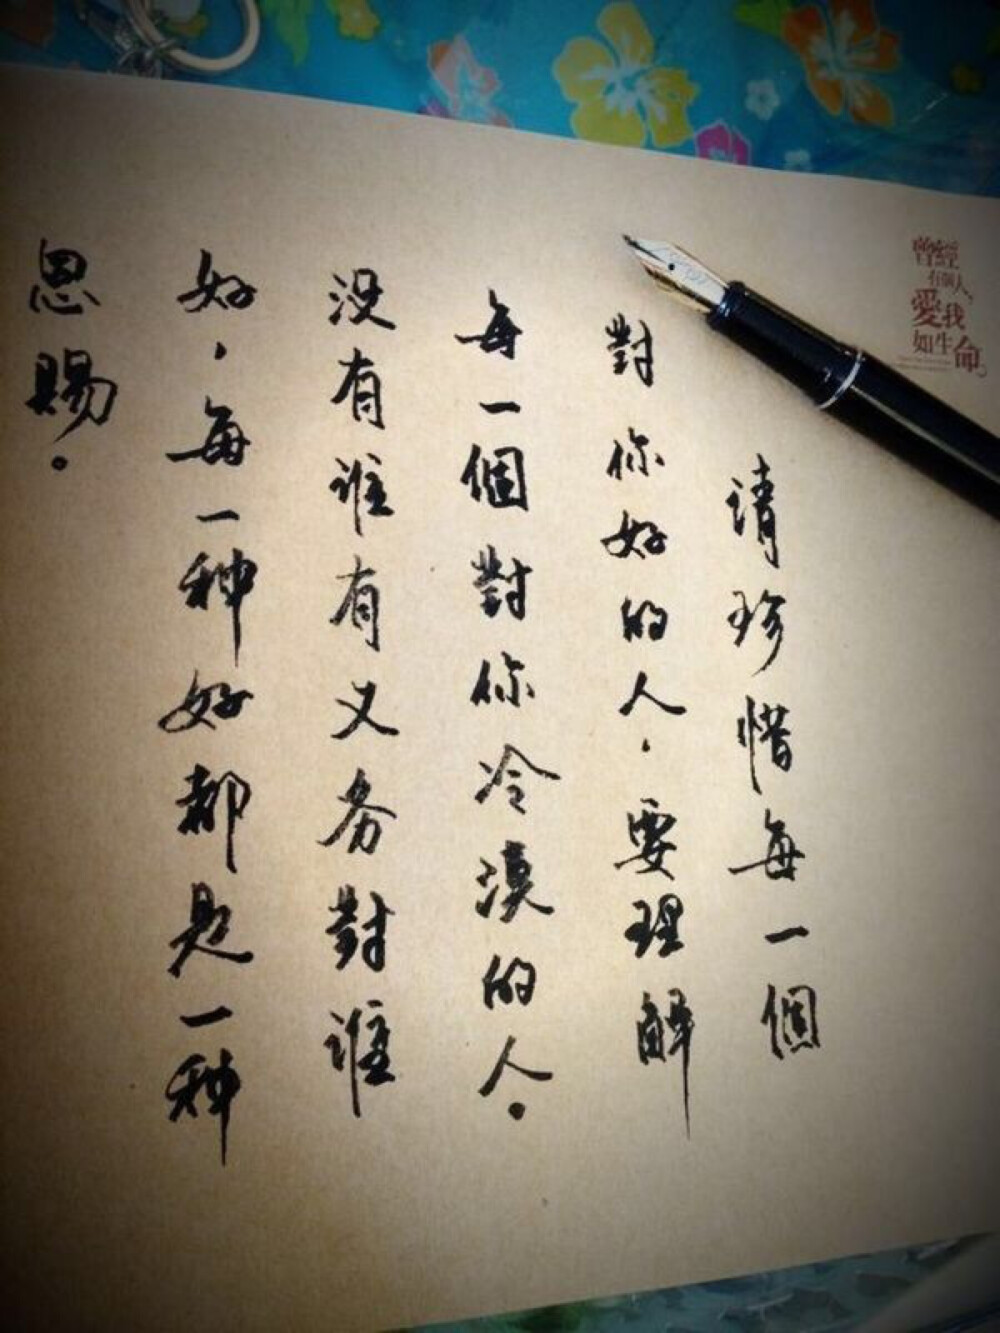 请珍惜每一個
對你好的人，要理解
每一個對你冷漠的人。
没有谁有义务對谁
好，每一种好都是一种
恩賜。
曾經
有個人，
愛我
如生命。